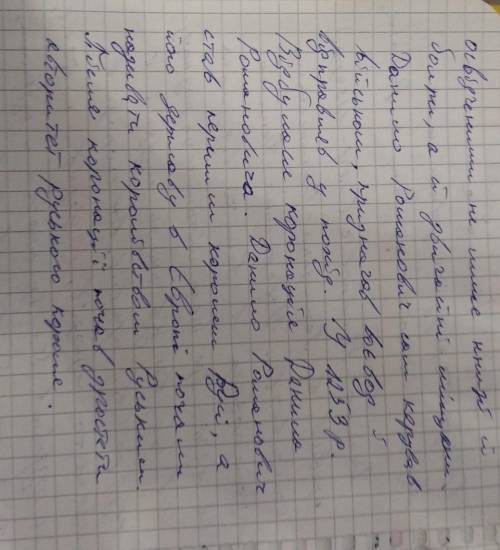 освіченими не лише князі й
бояри, а й звичайні міщани.
Данило Романович сам керував
військом, призначав воєвод і
відправляв у похід. У 1253 р.
Відбулася коронація Данила
Романовича. Данило Романович
став першим королем Русі, а
його державу в Європі почали
називати королівством Руським.
Після коронації почав зростати
авторитет руського короля.